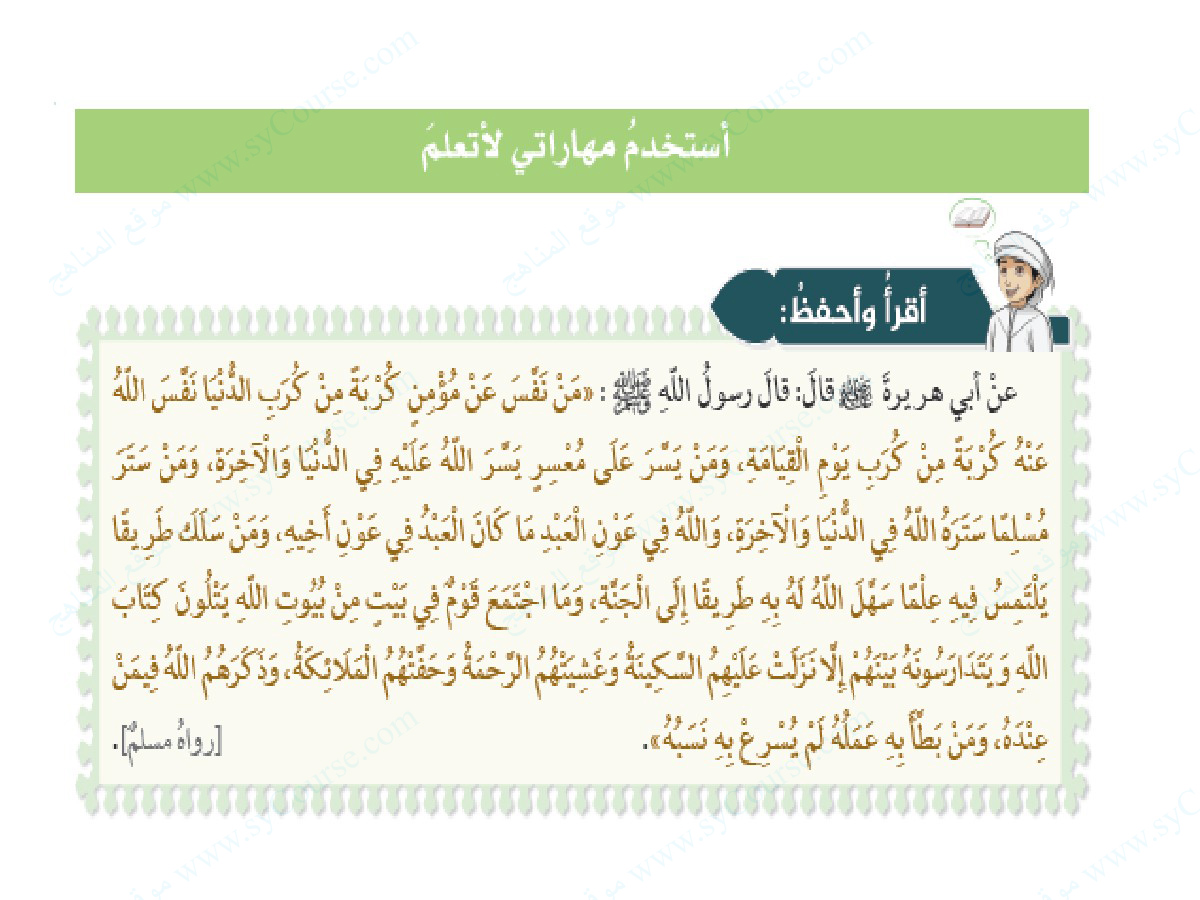 أستخدمُ مهاراتي لأتعلمَ
أقرأُ وأحفظُ:
عنْ أبي هريرةَ ﵁ قالَ: قالَ رسولُ اللّهِ ﷺ : «مَنْ نَفَّسَ عَنْ مُؤْمِنٍ كُرْبَةً مِنْ كُرَبِ الدُّنْيَا نَفَّسَ اللّهُ
عَنْهُ كُرْبَةً مِنْ كُرَبِ يَوْمِ الْقِيَامَةِ، وَمَنْ يَسَّرَ عَلَى مُعْسِرٍ يَسَّرَ اللّهُ عَلَيْهِ فِي الدُّنْيَا وَالْآخِرَةِ، وَمَنْ سَتَرَ
مُسْلِمًا سَتَرَهُ اللّهُ فِي الدُّنْيَا وَالْآخِرَةِ، وَاللّهُ فِي عَوْنِ الْعَبْدِ مَا كَانَ الْعَبْدُ فِي عَوْنِ أَخِيهِ، وَمَنْ سَلَكَ طَرِيقًا
يَلْتَمِسُ فِيهِ عِلْمًا سَهَّلَ اللّهُ لَهُ بِهِ طَرِيقًا إِلَى الْجَنَّةِ، وَمَا اجْتَمَعَ قَوْمٌ فِي بَيْتٍ مِنْ بُيُوتِ اللّهِ يَتْلُونَ كِتَابَ
اللّهِ وَيَتَدَارَسُونَهُ بَيْنَهُمْ إِلَّا نَزَلَتْ عَلَيْهِمُ السَّكِينَةُ وَغَشِيَتْهُمُ الرَّحْمَةُ وَحَفَّتْهُمُ الْمَلَائِكَةُ، وَذَكَرَهُمُ اللّهُ فِيمَنْ
عِنْدَهُ، وَمَنْ بَطَّأَ بِهِ عَمَلُهُ لَمْ يُسْرِعْ بِهِ نَسَبُهُ». [رواهُ مسلمٌ].
موقع المناهج www.syCourse.com